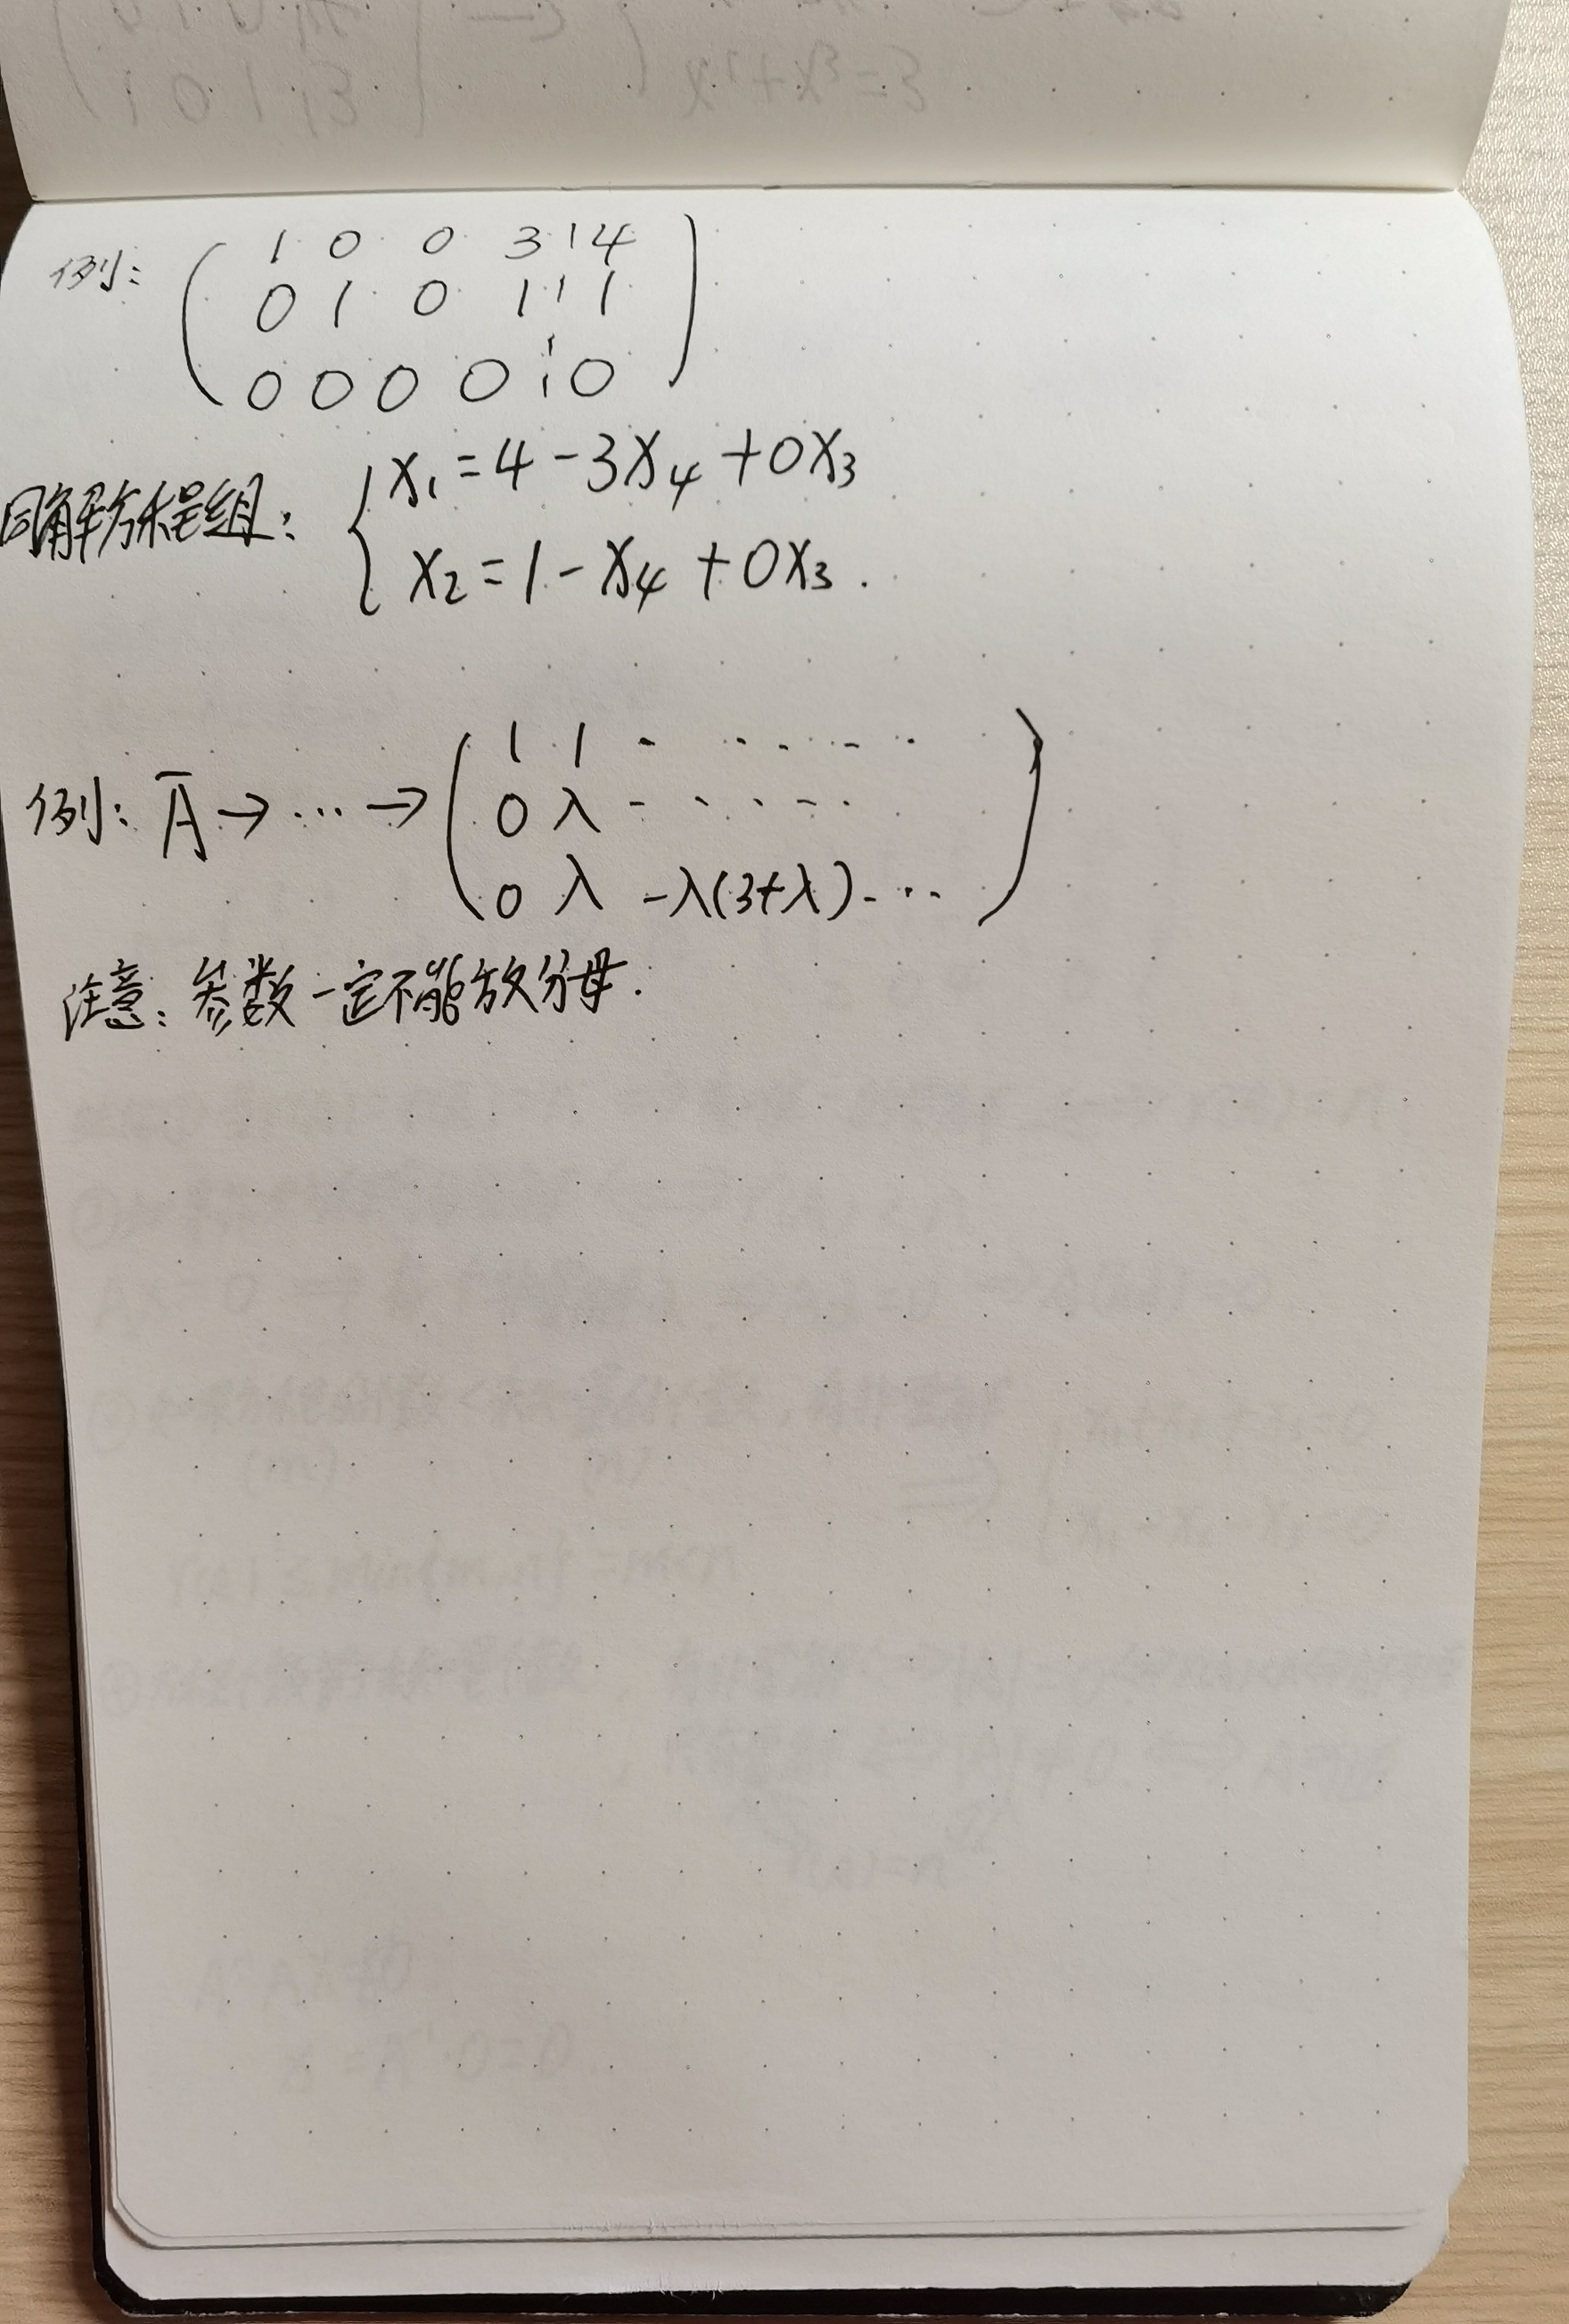 例: ( 1 0 0 3 ¦ 4
0 1 0 1 ¦ 1
0 0 0 0 ¦ 0 )
同解方程组: { x₁=4-3x₄+0x₃
x₂=1-x₄+0x₃.
例: Ā→…→ ( 1 1 - ......
0 λ - .....
0 λ -λ(3+λ)-... )
注意: 参数一定不能放分母.